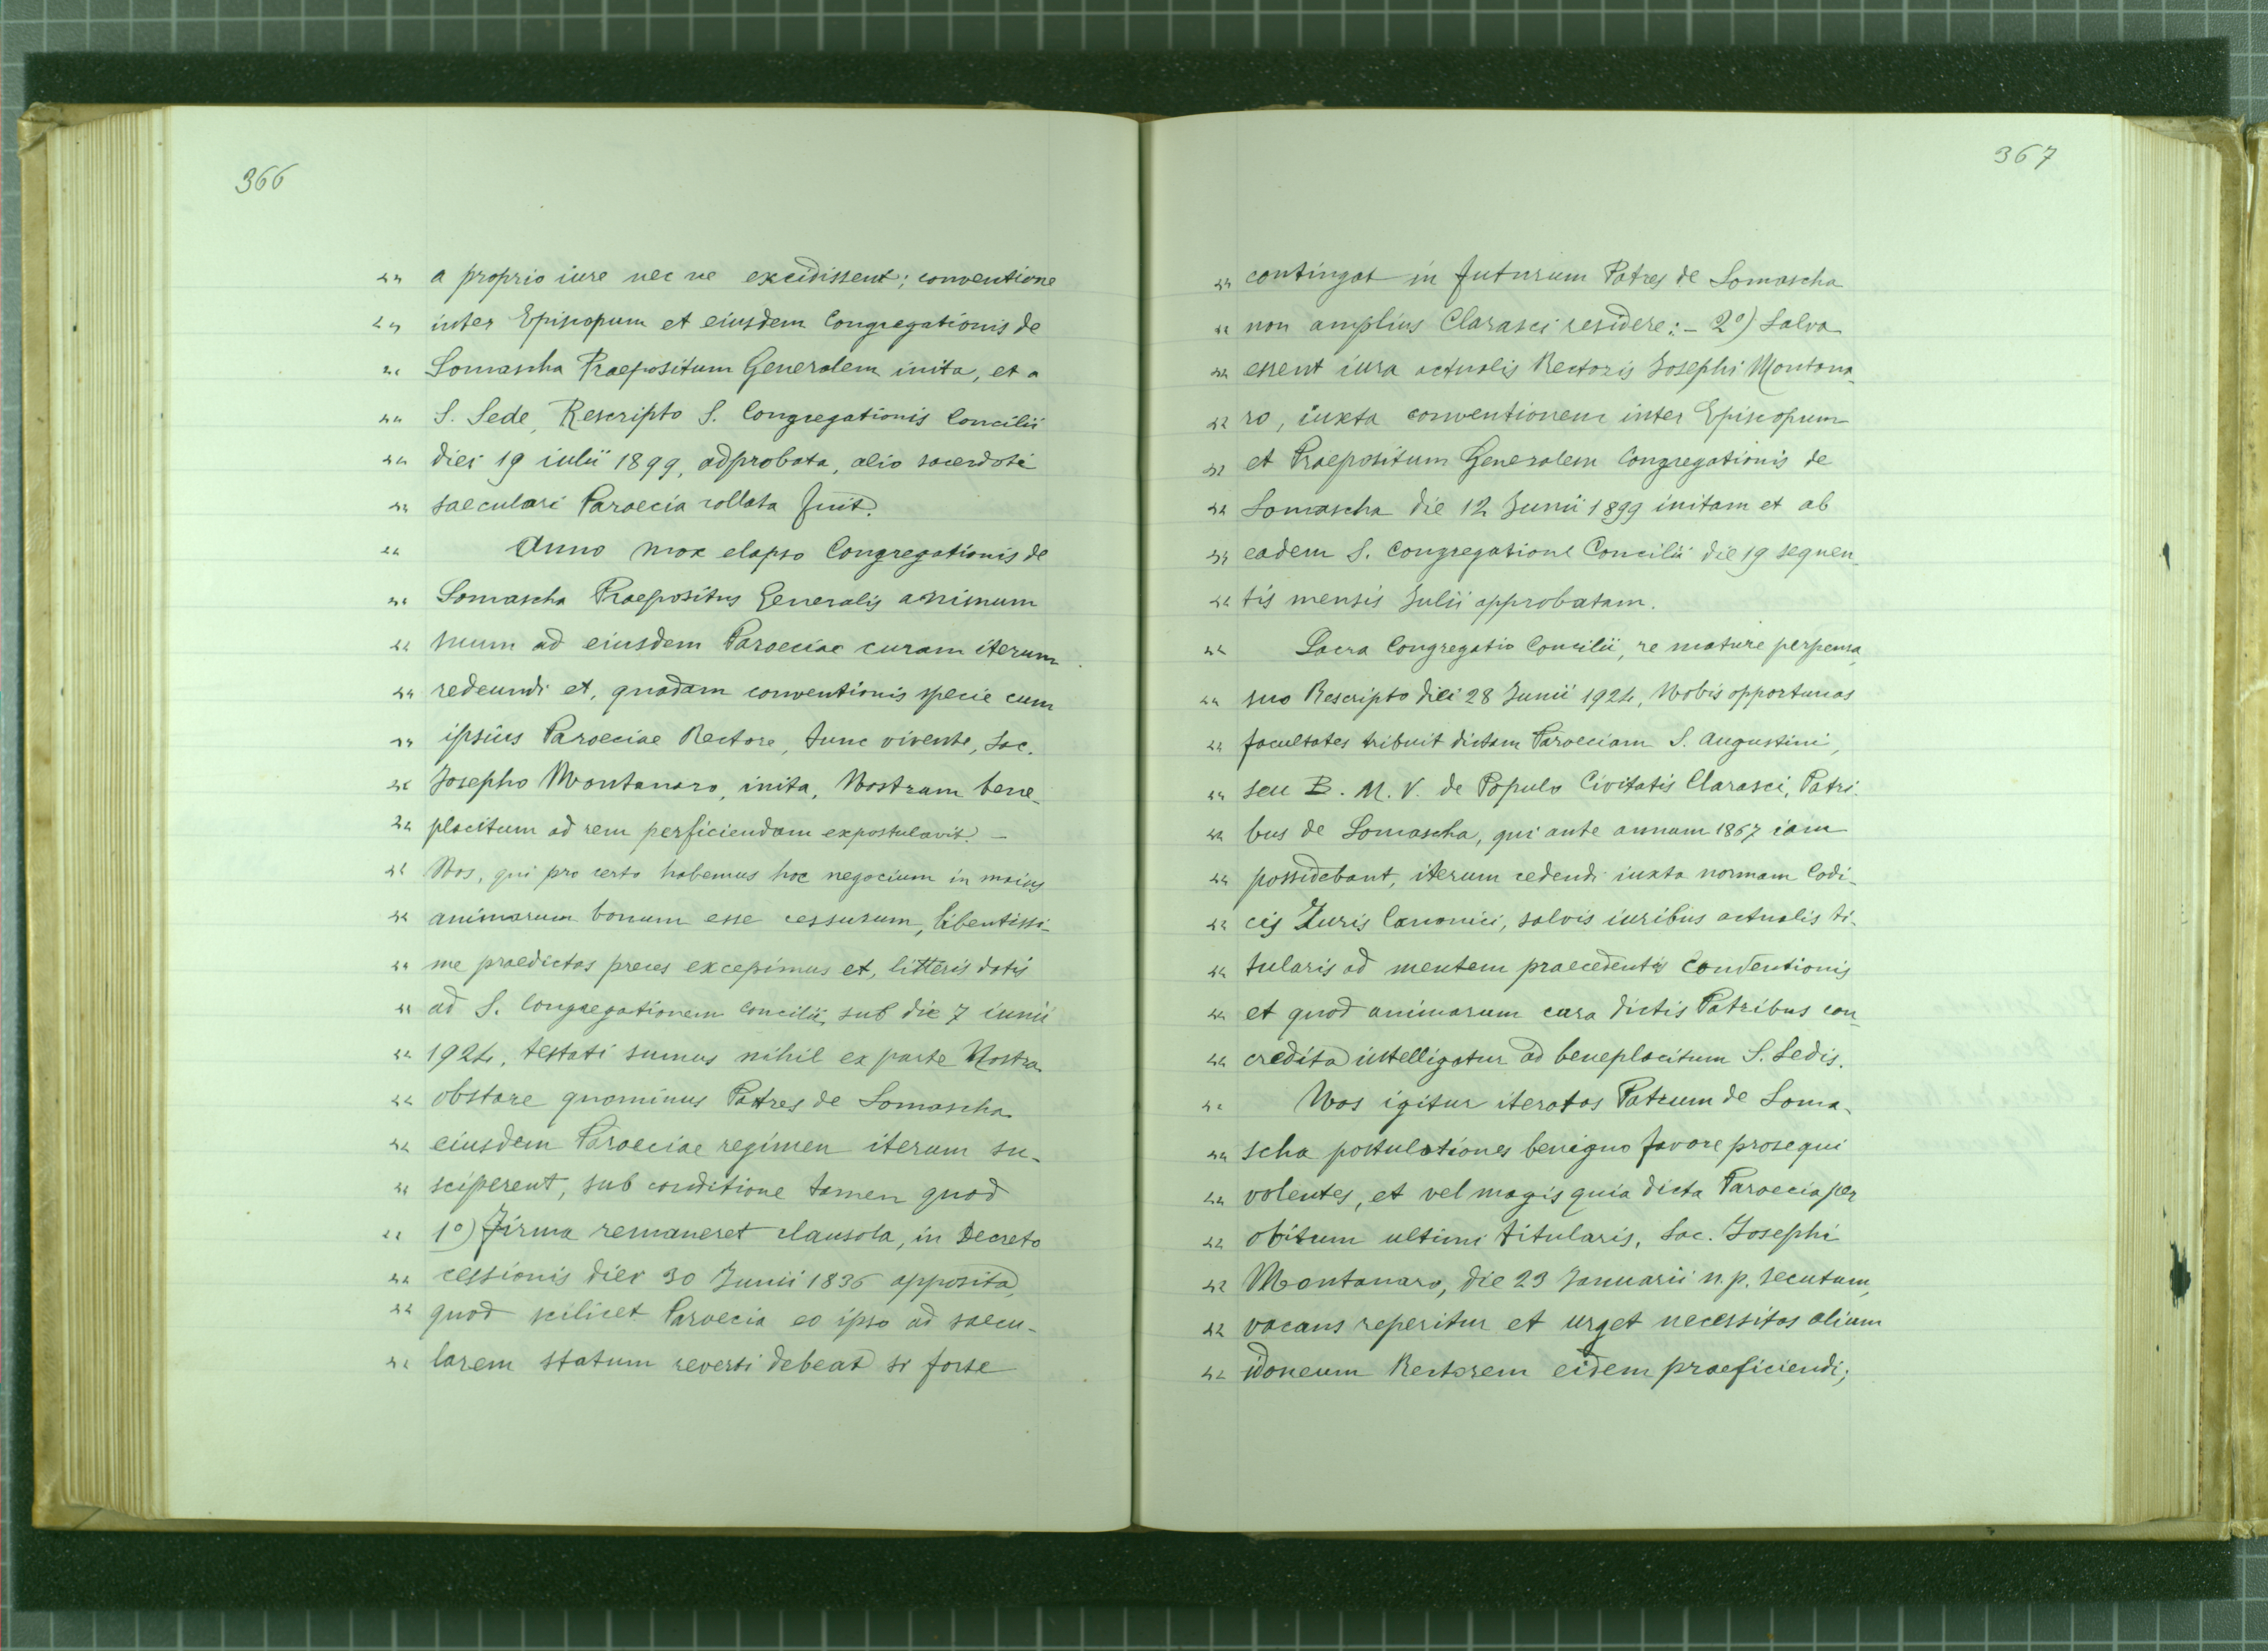 366
"" a proprio iure nec ne excidissent; conventione
"" inter Episcopum et eiusdem Congregationis de
"" Somascha Praepositum Generalem inita, et a
"" S. Sede, Rescripto S. Congregationis Concilii
"" diei 19 iulii 1899, adprobata, alio sacerdoti
"" saeculari Paroecia collata fuit.
"" Anno mox elapso Congregationis de
"" Somascha Praepositus Generalis animum
"" suum ad eiusdem Paroeciae curam iterum
"" redeundi et, quadam conventionis specie cum
"" ipsius Paroeciae Rectore, tunc vivente, Sac.
"" Josepho Montanaro, inita, Nostrum bene-
"" placitum ad rem perficiendam expostulavit. -
"" Nos, qui pro certo habemus hoc negocium in maius
"" animarum bonum esse cessurum, libentissi-
"" me praedictas preces excepimus et, litteris datis
"" ad S. Congregationem Concilii, sub die 7 iunii
"" 1924, testati sumus nihil ex parte Nostra
"" obstare quominus Patres de Somascha
"" eiusdem Paroeciae regimen iterum su-
"" sciperent, sub conditione tamen quod
"" 1º) firma remaneret clausola, in Decreto
"" cessionis diei 30 Junii 1836 apposita,
"" quod scilicet Paroecia eo ipso ad saecu-
"" larem statum reverti debeat si forte
367
"" contingat in futurum Patres de Somascha
"" non amplius Clarasci residere: - 2º) Salva
"" essent iura actualis Rectoris Josephi Montana-
"" ro, iuxta conventionem inter Episcopum
"" et Praepositum Generalem Congregationis de
"" Somascha die 12 Junii 1899 initam et ab
"" eadem S. Congregatione Concilii die 19 sequen-
"" tis mensis Julii approbatam.
"" Sacra Congregatio Concilii, re mature perpensa,
"" suo Rescripto diei 28 Junii 1924, Nobis opportunas
"" facultates tribuit dictam Paroeciam S. Augustini,
"" seu B. M. V. de Populo Civitatis Clarasci, Patri-
"" bus de Somascha, qui ante annum 1867 iam
"" possidebant, iterum cedendi iuxta normam Codi-
"" cis Iuris Canonici, salvis iuribus actualis ti-
"" tularis ad mentem praecedentis Conventionis
"" et quod animarum cura dictis Patribus con-
"" credita intelligatur ad beneplacitum S. Sedis.
"" Nos igitur iteratas Patrum de Soma-
"" scha postulationes benigno favore prosequi
"" volentes, et vel magis quia dicta Paroecia per
"" obitum ultimi titularis, Sac. Josephi
"" Montanaro, die 23 Januarii n. p. secutum,
"" vacans reperitur et urget necessitas alium
"" idoneum Rectorem eidem praeficiendi;